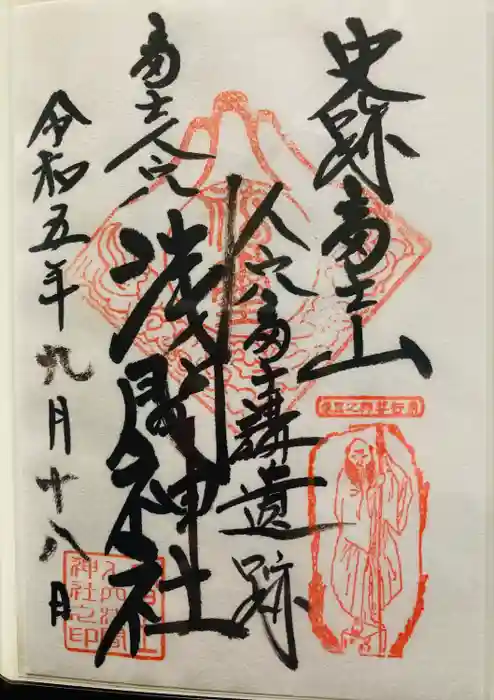 史跡富士山
人穴富士講遺跡
富士人穴
浅間神社
令和五年九月十八日
神社之印